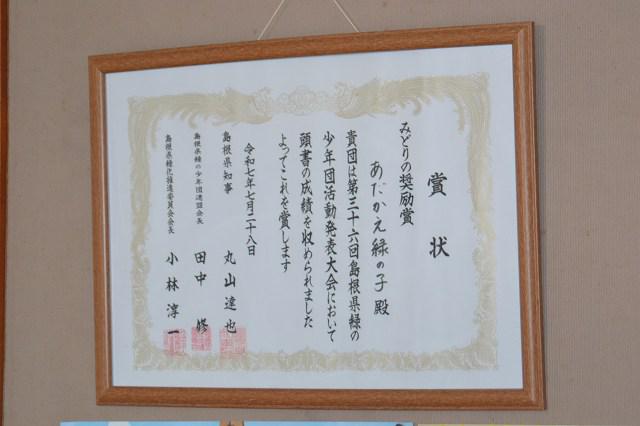 賞状
みどりの奨励賞
あだかえ緑の子 殿
貴団は第三十六回島根県緑の
少年団活動発表大会において
頭書の成績を収められました
よってこれを賞します
令和七年七月二十八日
島根県知事 丸山達也
島根県緑の少年団連盟会長 田中 修
島根県緑化推進委員会会長 小林淳一